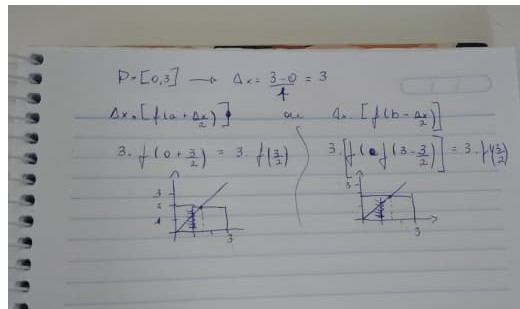 P = [0,3] → Δx = 3-0/1 = 3
Δx · [f(a + Δx/2)] ou Δx · [f(b - Δx/2)]
3 · f(0 + 3/2) = 3 · f(3/2) 3 · [f(f(3 - 3/2)] = 3 · f(3/2)
3 3
2
1
3 3